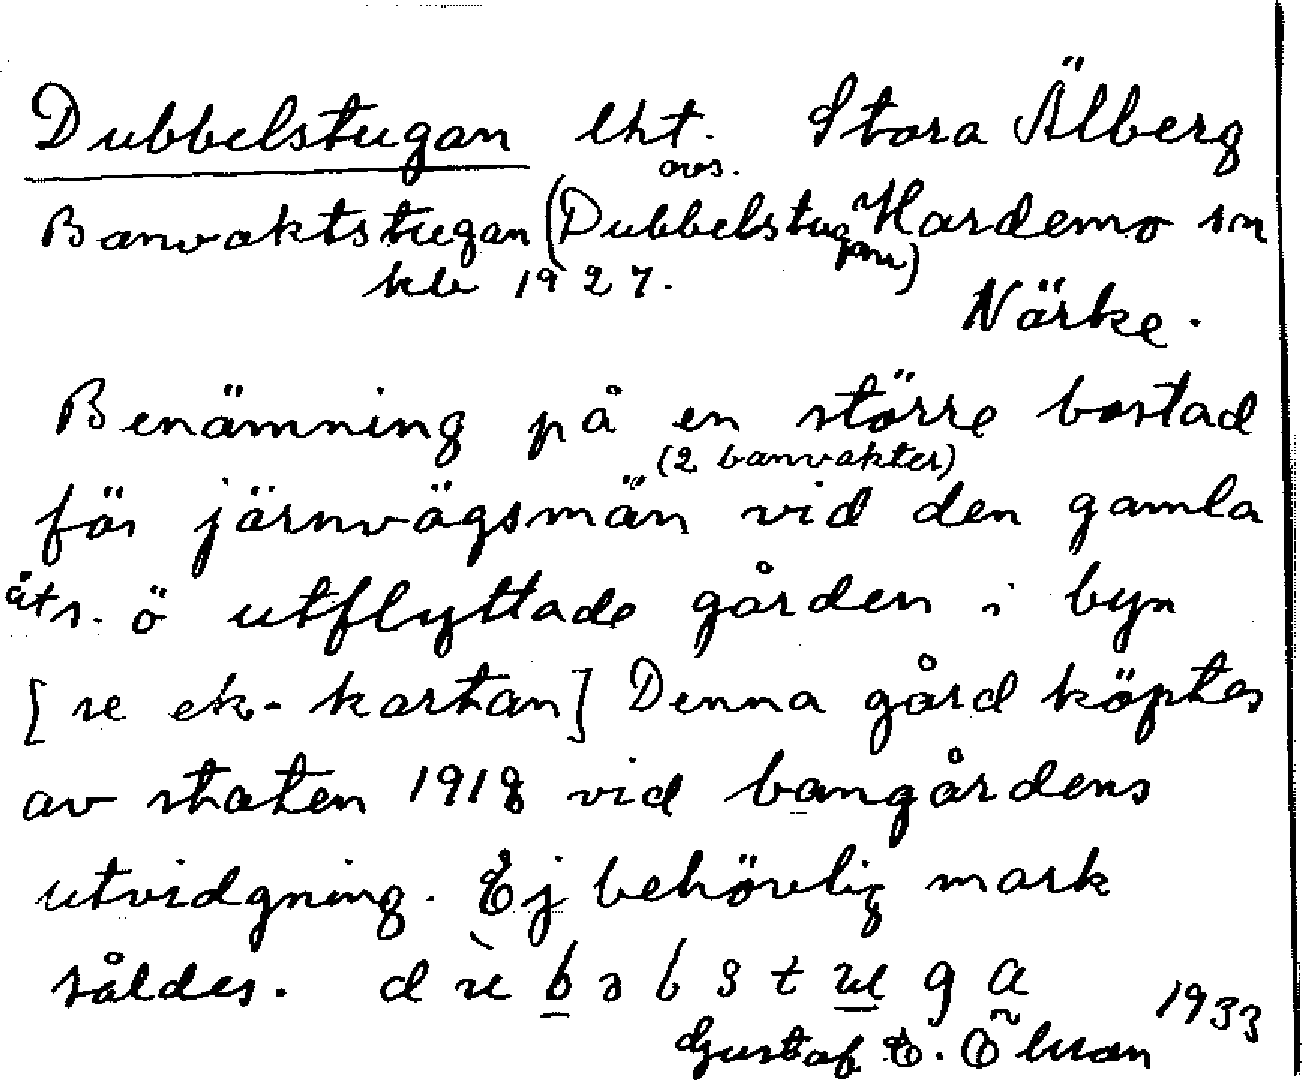 Dubbelstugan lht. Stora Älberg
avs.
Banvaktstugan (Dubbelstugan) Hardemo sn
1927.
Närke.
Benämning på en större bostad
(2 banvakter)
för järnvägsmän vid den gamla
åt s. ö utflyttade gården i byn
[se ek-kartan] Denna gård köptes
av staten 1918 vid bangårdens
utvidgning. Ej behövlig mark
såldes. d u b ə b s t u g a
1933
Gustaf E. Öhman